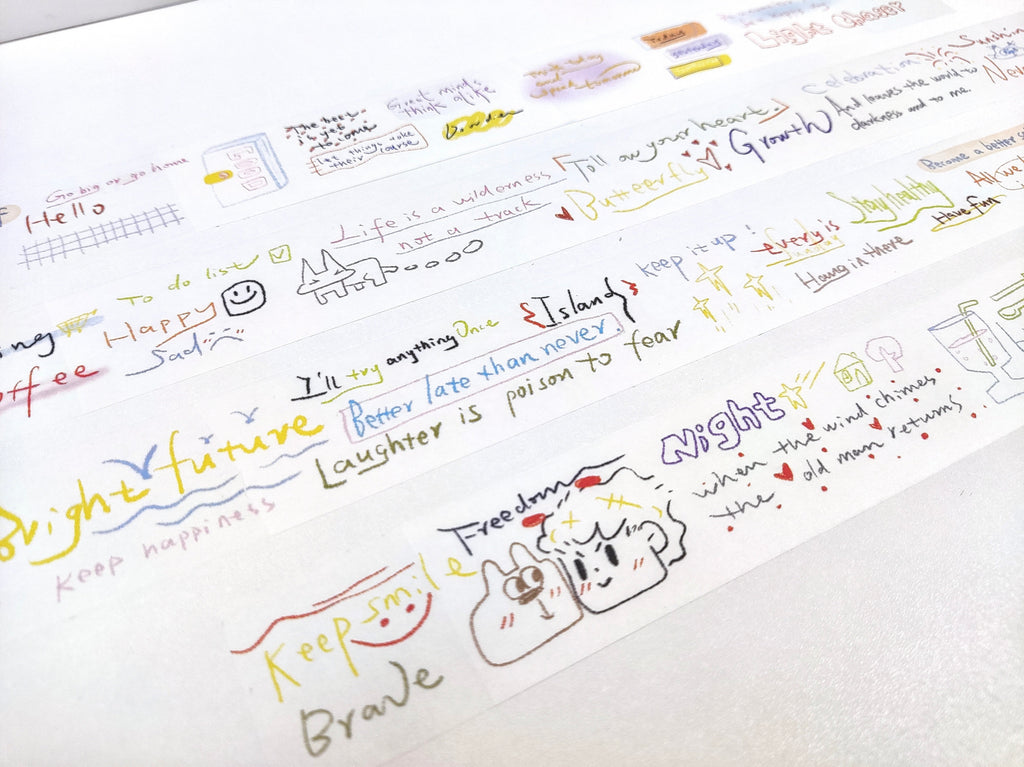 Go big or go home
Hello
The best
is yet
to come
let things take
their course
Great minds
think alike
Think today
and
speak tomorrow
Today
Light Chaser
To do list
Happy
Sad
Life is a wilderness
not a track
Follow your heart.
Butterfly
Growth
Celebration
And leaves the world to
darkness and to me.
Sunshine
offee
I'll try anything Once
{Island}
Better late than never.
Laughter is poison to fear
Keep it up!
every is
Sunday
Hang in there
Stay healthy
Have fun
Become a better
All we
Bright future
Keep happiness
Keep smile
Brave
Freedom
Night
when the wind chimes
the old man returns